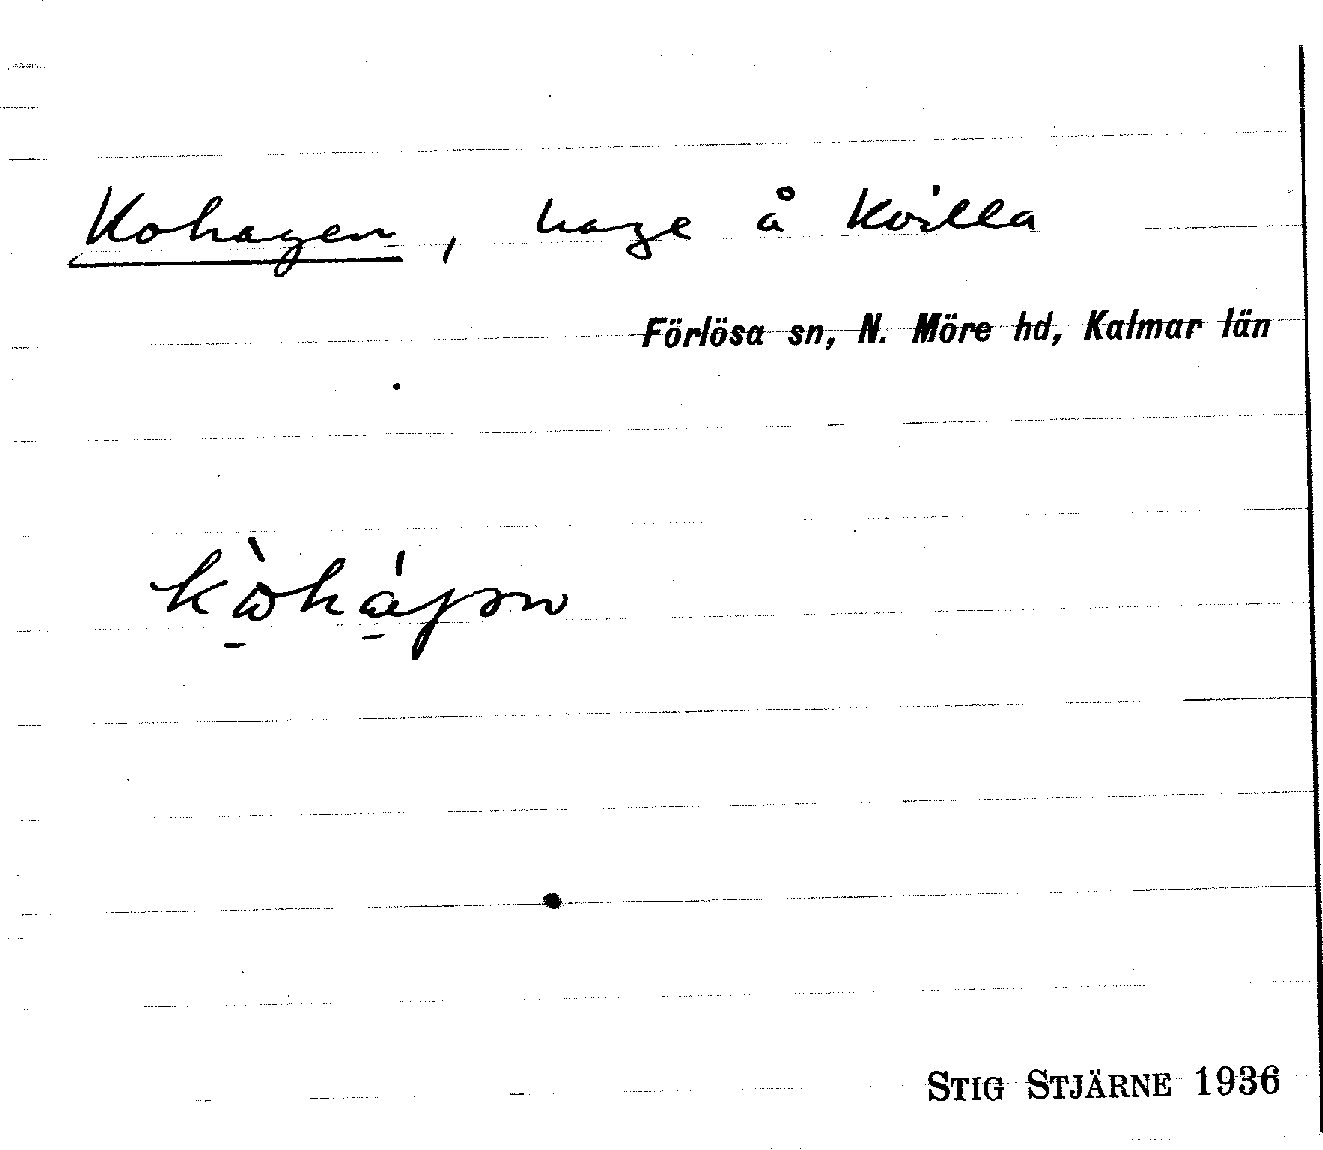 Kohagen, hage å Kvilla
Förlösa sn, N. Möre hd, Kalmar län
STIG STJÄRNE 1936